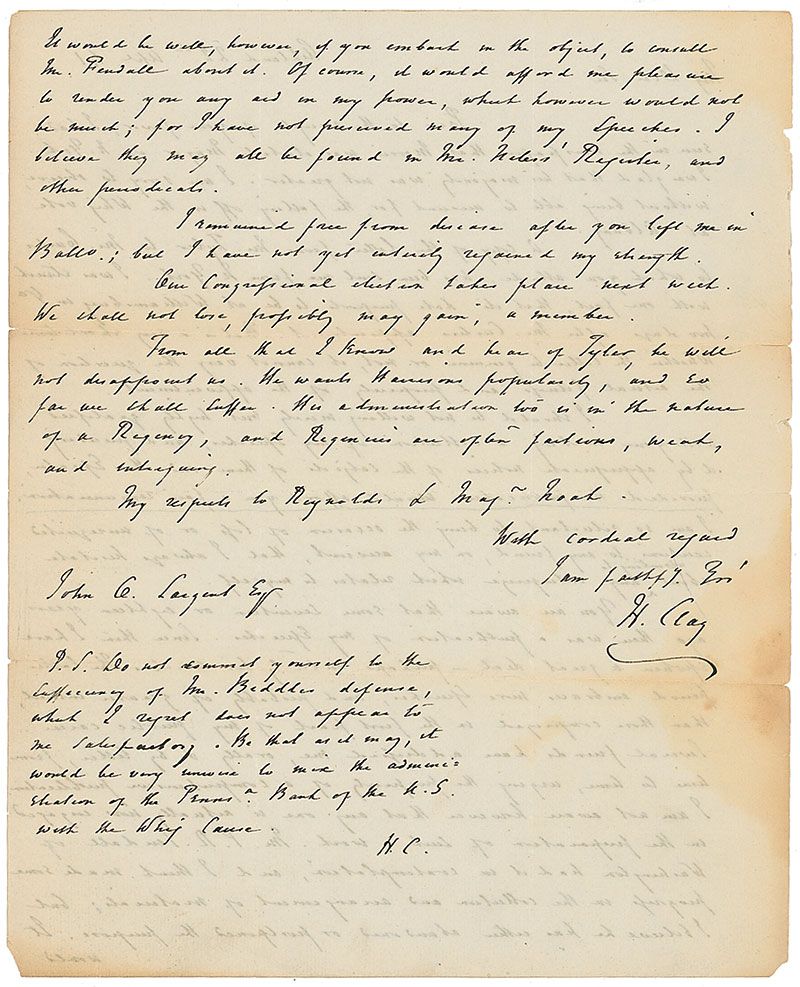 It would be well, however, if you embark in the object, to consult
Mr. Fendall about it. Of course, it would afford me pleasure
to render you any aid in my power, which however would not
be much; for I have not preserved many of my Speeches. I
believe they may all be found in Mr. Neless' Register, and
other periodicals.
I remained free from disease after you left me in
Balto.; but I have not yet entirely regained my strength.
Our Congressional election takes place next week.
We shall not lose, possibly may gain, a member.
From all that I know and hear of Tyler, he will
not disappoint us. He wants Harrisons popularity, and so
far we shall suffer. His administration too is in the nature
of a Regency, and Regencies are often factious, weak,
and intriguing.
My respects to Reynolds & Maj.r Noah.
With cordial regard
I am faithfy. Yrs
H. Clay
John O. Sargent Esq.
P.S. Do not commit yourself to the
sufficiency of Mr. Biddles defense,
which I regret does not appear to
me satisfactory. Be that as it may, it
would be very unwise to mix the admini-
stration of the Penns.a Bank of the U.S.
with the Whig Cause.
H.C.